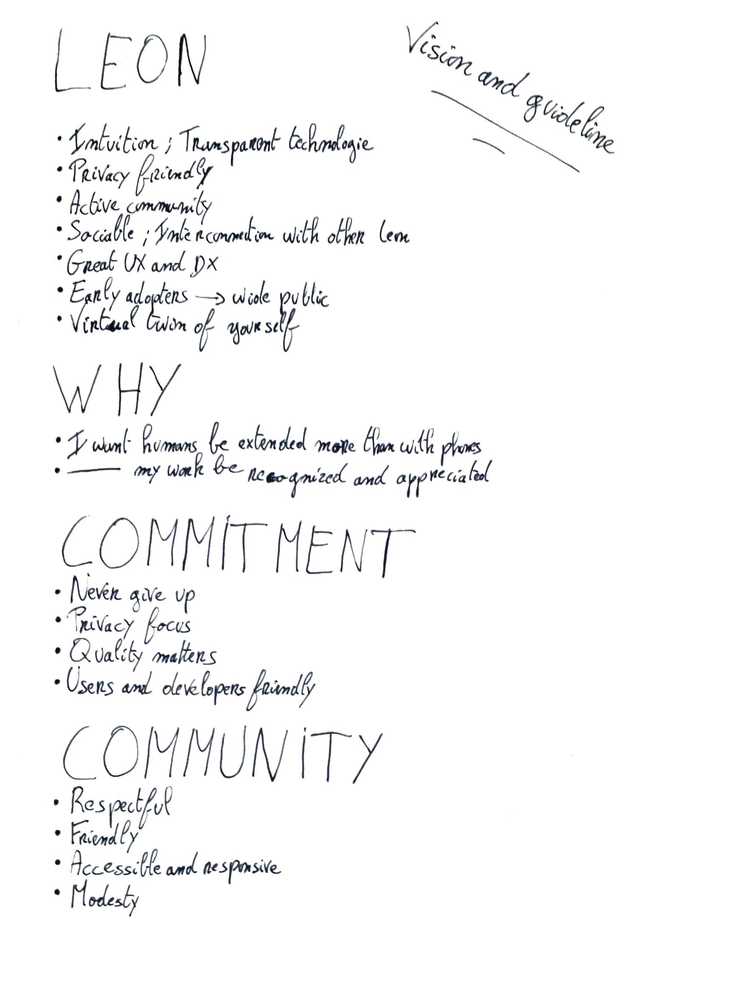 LEON
Vision and guideline
• Intuition ; Transparent technologie
• Privacy friendly
• Active community
• Sociable ; Interconnection with other Leon
• Great UX and DX
• Early adopters → wide public
• Virtual twin of yourself
WHY
• I want humans be extended more than with phones
• —— my work be recognized and appreciated
COMMITMENT
• Never give up
• Privacy focus
• Quality matters
• Users and developers friendly
COMMUNITY
• Respectful
• Friendly
• Accessible and responsive
• Modesty